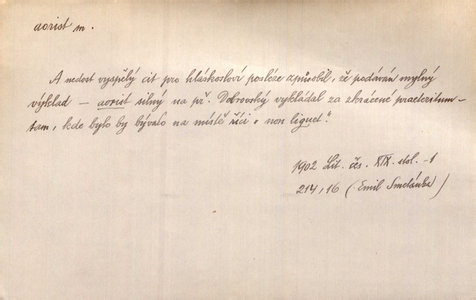 aorist m.
A nedost vyspělý cit pro hláskosloví posléze způsobil, že podáván mylný
výklad — aorist silný na př. Dobrovský vykládal za zkrácené praeteritum —
tam, kde bylo by bývalo na místě říci „non liquet".
1902 Lit. čes. XIX. stol. -1
214,16 (Emil Smetánka)